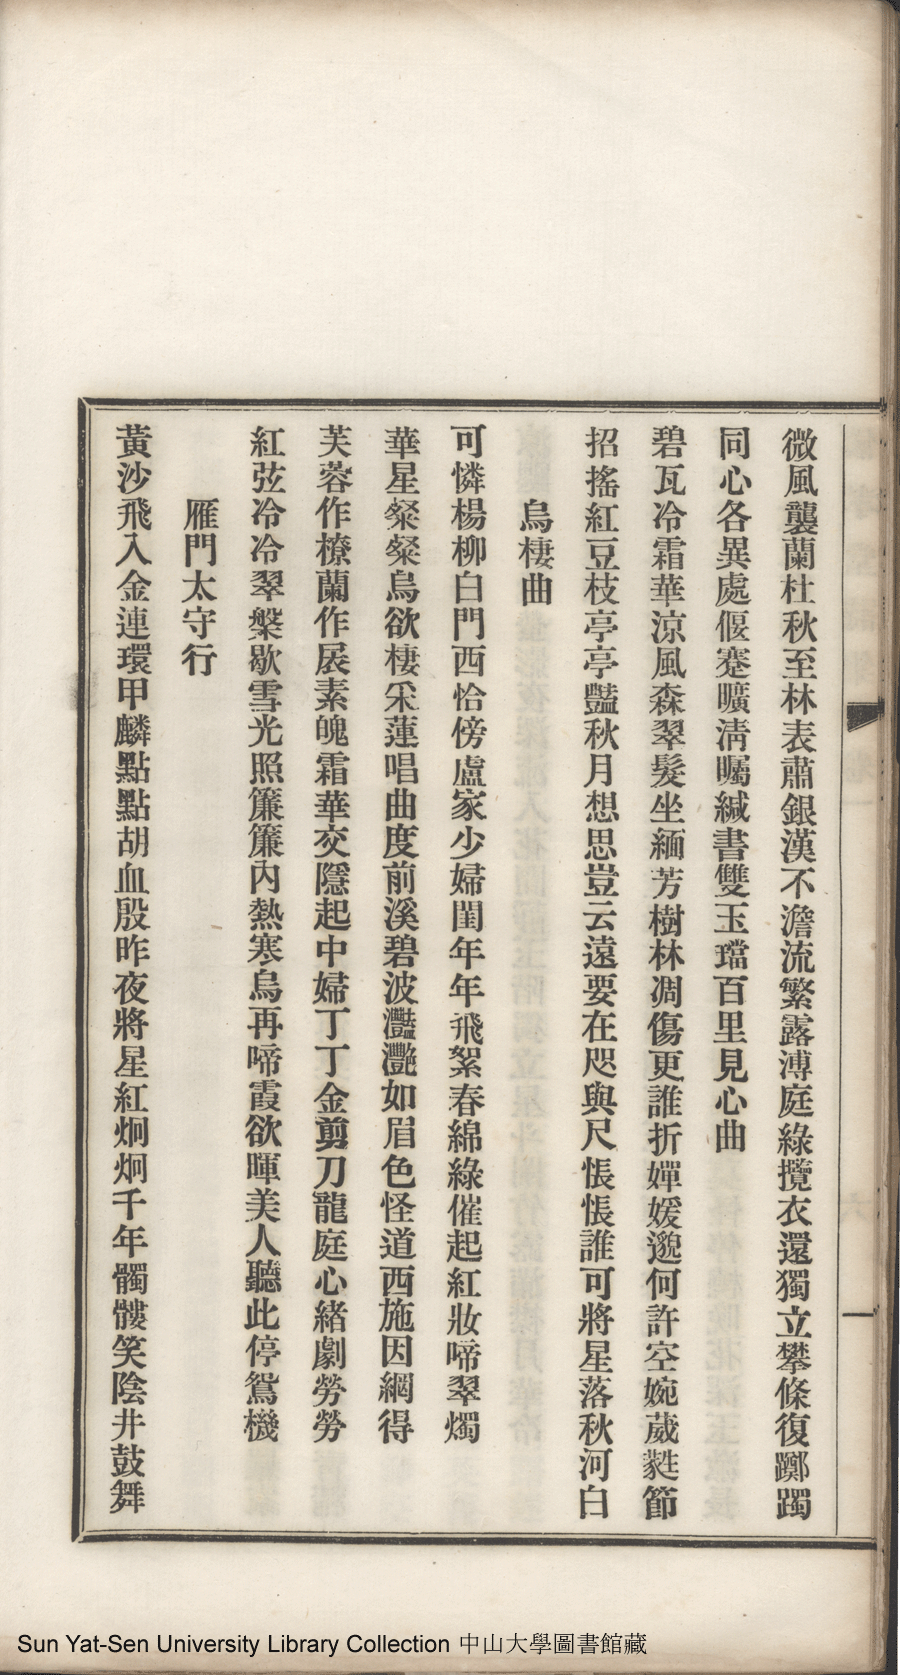 微風襲蘭杜秋至林表肅銀漢不澹流繁露溥庭綠攬衣還獨立攀條復躑躅
同心各異處偃蹇曠淸矚緘書雙玉璫百里見心曲
碧瓦冷霜華涼風森翠髮坐緬芳樹林凋傷更誰折嬋媛邈何許空婉葳甤節
招搖紅豆枝亭亭豔秋月想思豈云遠要在咫與尺悵悵誰可將星落秋河白
烏棲曲
可憐楊柳白門西恰傍盧家少婦閨年年飛絮春綿綠催起紅妝啼翠燭
華星粲粲烏欲棲采蓮唱曲度前溪碧波灩灩如眉色怪道西施因網得
芙蓉作橑蘭作扆素魄霜華交隱起中婦丁丁金剪刀龍庭心緒劇勞勞
紅弦冷冷翠槃歇雪光照簾簾內熱寒烏再啼霞欲暉美人聽此停鴛機
雁門太守行
黃沙飛入金連環甲麟點點胡血殷昨夜將星紅炯炯千年髑髏笑陰井鼓舞
六
一
Sun Yat-Sen University Library Collection 中山大學圖書館藏